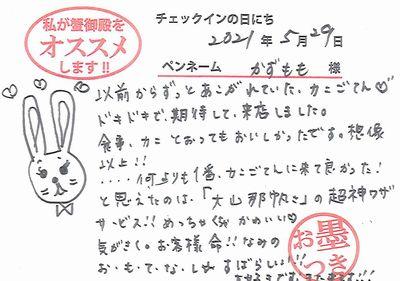 私が蟹御殿を
オススメ
します!!
チェックインの日にち
2021年5月29日
ペンネーム かずもも 様
以前からずっとあこがれていた、カニごてん♡
ドキドキで、期待して、来店しました。
食事、カニ とおってもおいしかったです。想像
以上!!
....何よりも1番、カニごてんに来て良かった!
と思えたのは、「大山那帆」の超神ワザ
サービス!! めっちゃくちゃかわいい♡
気がきく。お客様命!!なみの
お・も・て・な・し すばらしい!!!
お墨
つき